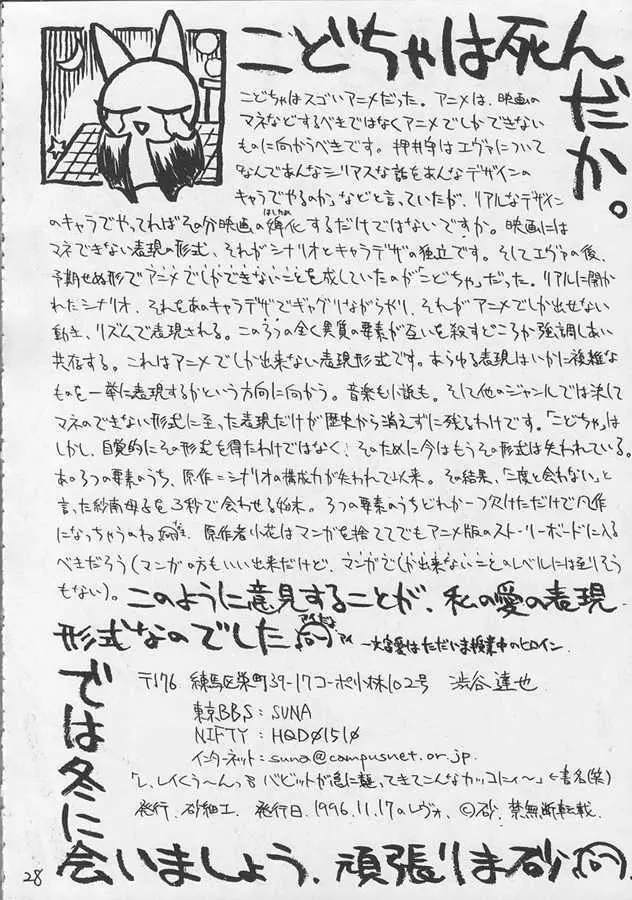 こどちゃは死んだか。
こどちゃはスゴいアニメだった。アニメは、映画の
マネなどするべきではなくアニメでしかできない
ものに向かうべきです。押井守はエヴァについて
「なんであんなシリアスな話をあんなデザインの
キャラでやるのか」などと言っていたが、リアルなデザイン
のキャラでやってればその分映画の化するだけではないですか。映画には
マネできない表現の形式、それがシナリオとキャラデザの独立です。そしてエヴァの後、
予期せぬ形でアニメでしかできないことを成していたのが「こどちゃ」だった。リアルに開か
れたシナリオ、それをあのキャラデザでギャグりながらやり、それがアニメでしか出せない
動き、リズムで表現される。この3つの全く異質の要素が互いを殺すどころか強調しあい
共存する。これはアニメでしか出来ない表現形式です。あらゆる表現はいかに複雑な
ものを一挙に表現するかという方向に向かう。音楽も小説も。そして他のジャンルでは決して
マネのできない形式に至った表現だけが歴史から消えずに残るわけです。「こどちゃ」は
しかし、自覚的にその形式を得たわけではなく、そのために今はもうその形式は失われている。
あの3つの要素のうち、原作=シナリオの構成力が失われて以来。その結果、「二度と会わない」と
言った紗南母子を3秒で会わせる始末。3つの要素のうちどれか一つ欠けただけで凡作
になっちゃうのね 原作者小花はマンガを捨ててでもアニメ版のストーリーボードに入る
べきだろう(マンガの方もいい出来だけど、マンガでしか出来ないことのレベルには至りそう
もない)。このように意見することが、私の愛の表現
形式なのでした 一大宮愛はただいま授業中のヒロイン
〒176 練馬区栄町39-17コーポ小林102号 渋谷達也
東京BBS:SUNA
NIFTY:HQD01510
インターネット:suna@campusnet.or.jp
「し、しイくう〜んっ8 バビットが急に襲ってきてこんなカッコにィ〜」←書名(笑)
発行、砂細工、発行日、1996.11.17のレヴォ、©砂、禁無断転載、
では冬に
会いましょう、頑張りま砂
28